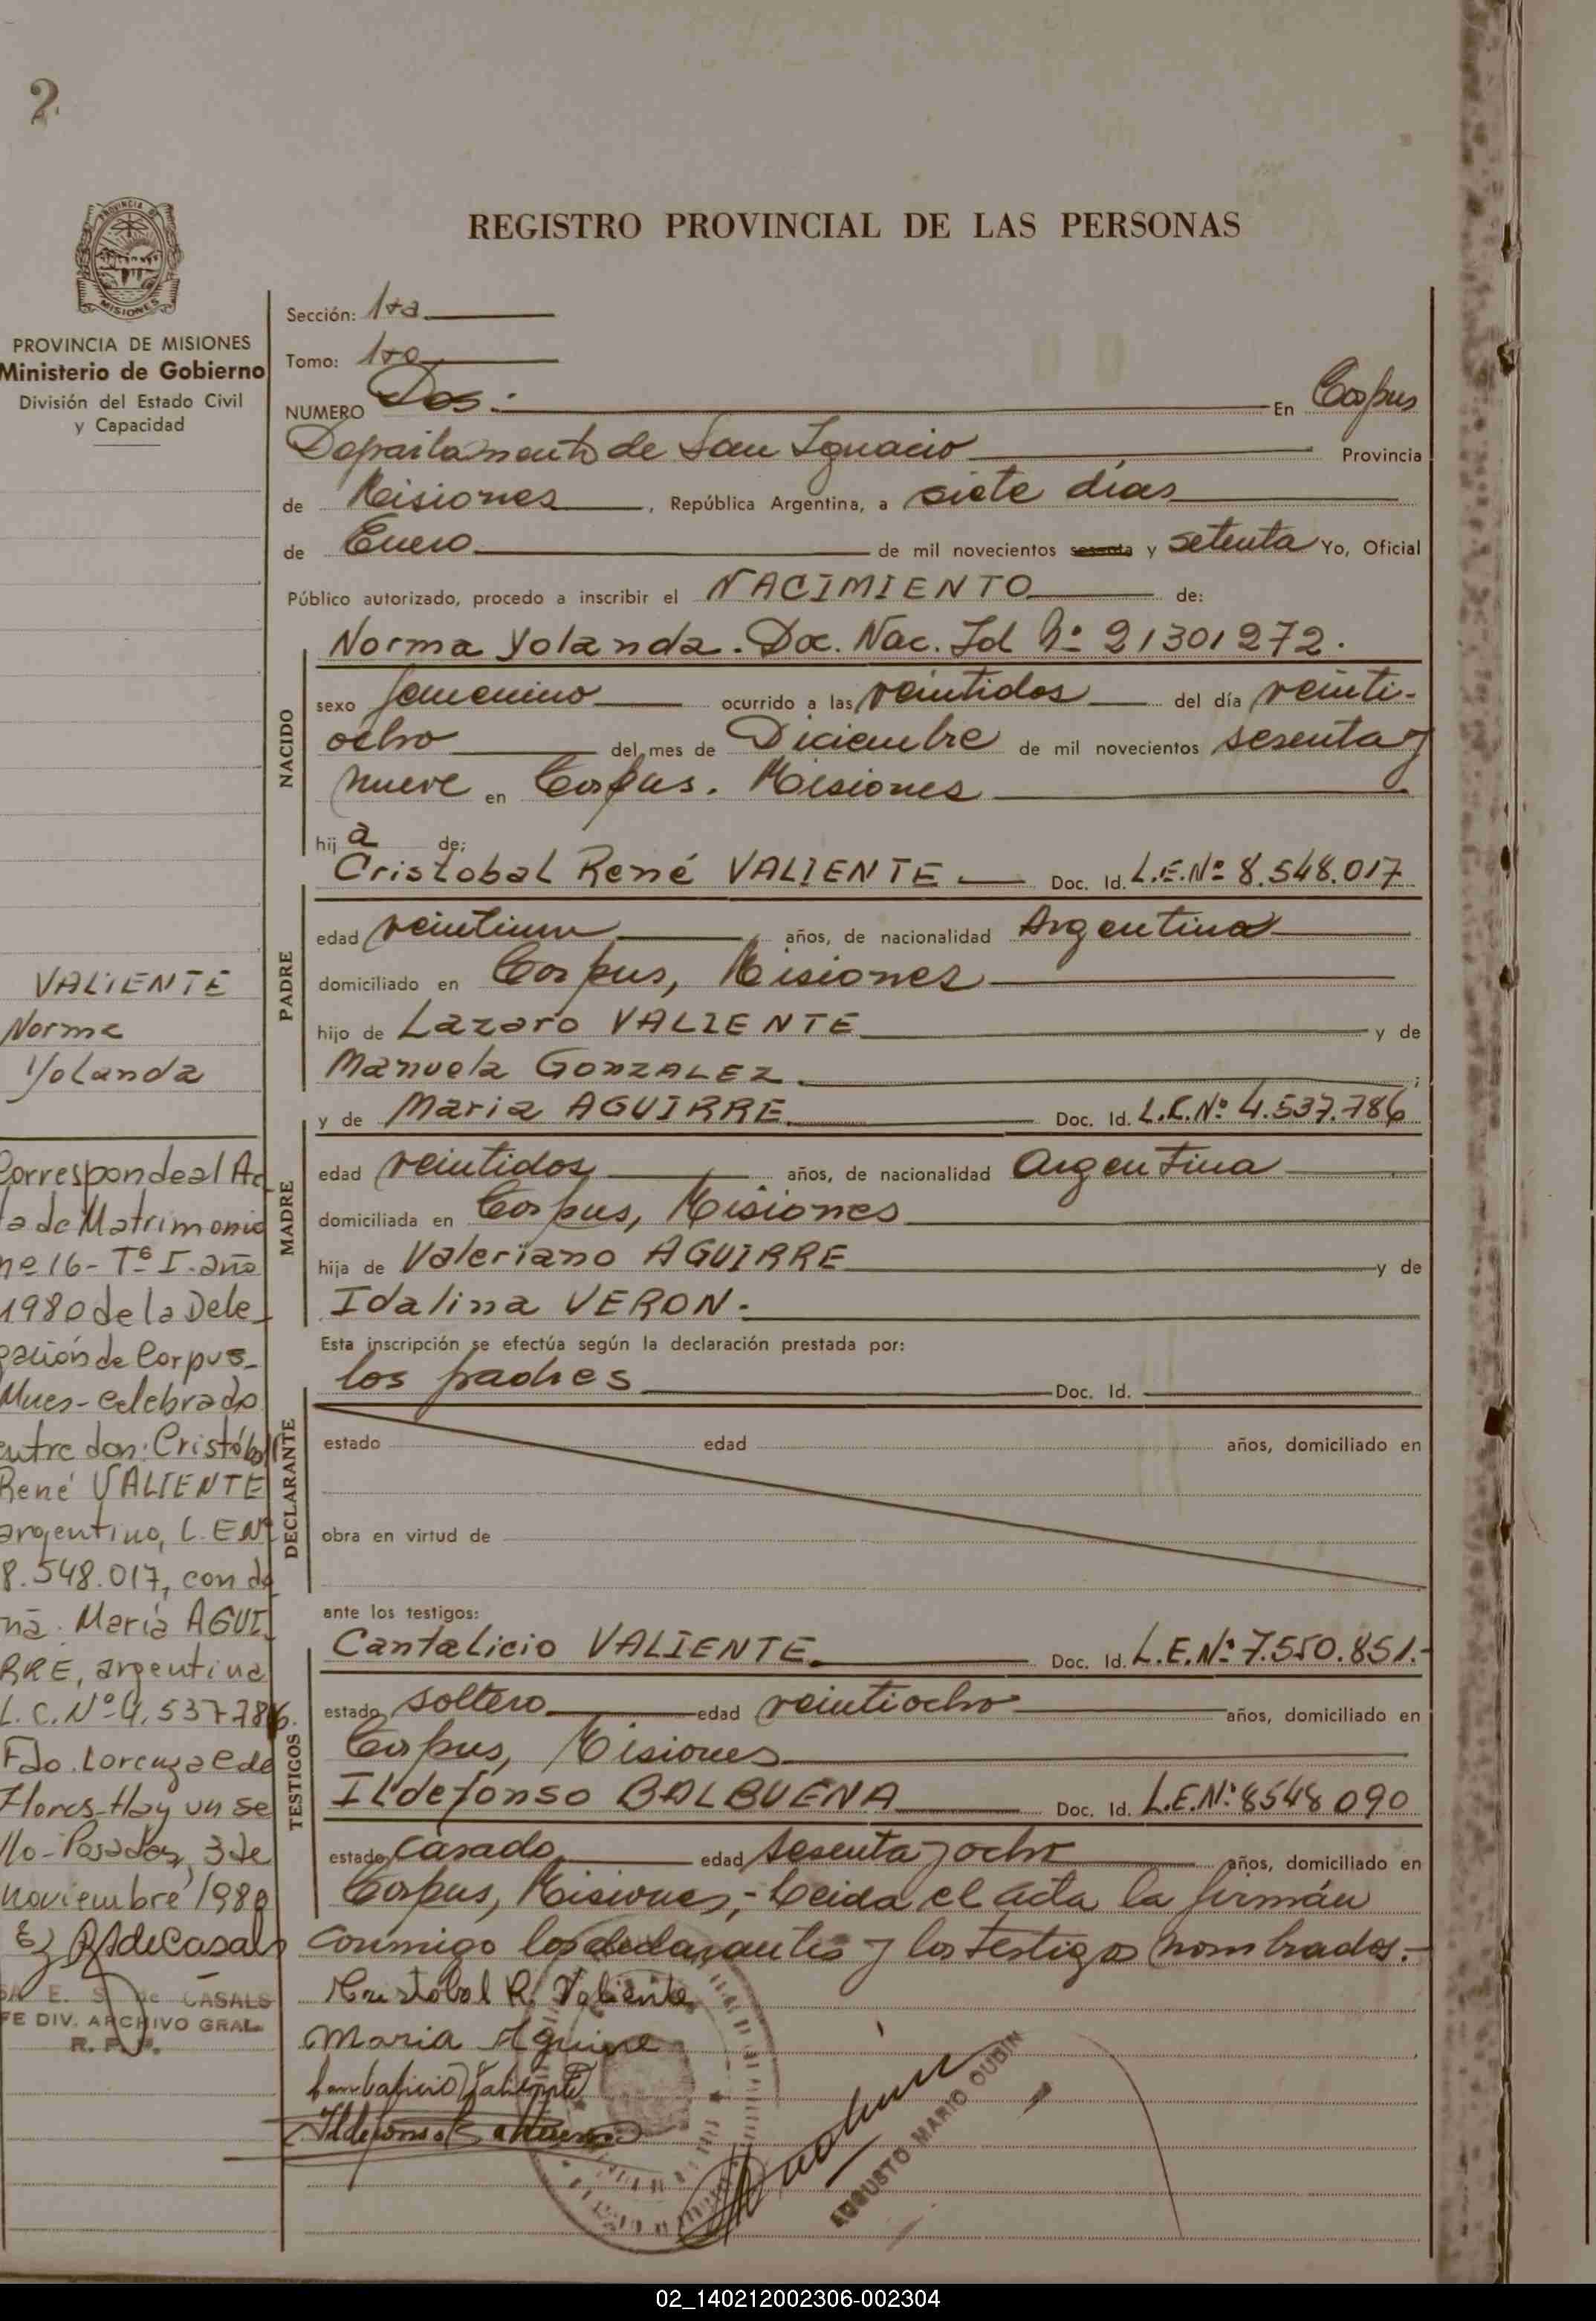 2
REGISTRO PROVINCIAL DE LAS PERSONAS
MISIONES
PROVINCIA DE MISIONES
Ministerio de Gobierno
División del Estado Civil
y Capacidad
Sección: 1ra
Tomo: 1ro
NUMERO Dos.- En Corpus
Departamento de San Ignacio Provincia
de Misiones, República Argentina, a siete días
de Enero de mil novecientos sesenta y setenta Yo, Oficial
Público autorizado, procedo a inscribir el NACIMIENTO de:
Norma Yolanda. Doc. Nac. Id Nº 21301272.
NACIDO
sexo femenino ocurrido a las veintidos del día veinti-
ocho del mes de Diciembre de mil novecientos sesenta y
nueve en Corpus. Misiones
hij a de:
Cristobal René VALIENTE Doc. Id. L.E.Nº 8.548.017
PADRE
edad veintiun años, de nacionalidad Argentina
domiciliado en Corpus, Misiones
hijo de Lazaro VALIENTE y de
Manuela GONZALEZ;
y de Maria AGUIRRE Doc. Id. L.C.Nº 4.537.786
MADRE
edad veintidos años, de nacionalidad Argentina
domiciliada en Corpus, Misiones
hija de Valeriano AGUIRRE y de
Idalina VERON.
Esta inscripción se efectúa según la declaración prestada por:
los padres Doc. Id.
DECLARANTE
estado edad años, domiciliado en
obra en virtud de
ante los testigos:
Cantalicio VALIENTE Doc. Id. L.E.Nº 7.550.851.-
TESTIGOS
estado soltero edad veintiocho años, domiciliado en
Corpus, Misiones
Ildefonso BALBUENA Doc. Id. L.E.Nº 8548090
estado casado edad sesenta y ocho años, domiciliado en
Corpus, Misiones,- Leida el acta la firmán
conmigo los declarantes y los testigos nombrados.-
Cristóbal R. Valiente
Maria Aguirre
Cantalicio Valiente
Ildefonso Balbuena
AUGUSTO MARIO OUDIN
VALIENTE
Norma
Yolanda
Corresponde al Ac
ta de Matrimonio
nº 16- Tº I. año
1980 de la Dele
gación de Corpus-
Mnes- celebrado
entre don: Cristóbal
René VALIENTE
argentino, L.E Nº
8.548.017, con do
ña. María AGUI
RRE, argentina
L.C.Nº 4.537786.
Fdo. Lorenza e de
Flores- Hay un se
llo- Posadas, 3 de
noviembre 1980
E. S. de CASALS
FE DIV. ARCHIVO GRAL.
R. P. P.
02_140212002306-002304